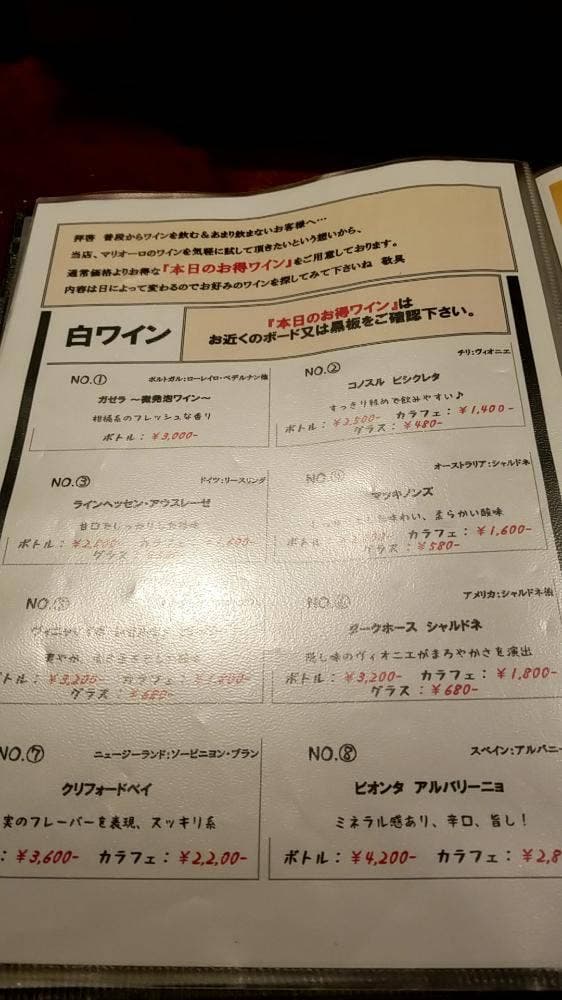 拝啓 普段からワインを飲む&あまり飲まないお客様へ…
当店、マリオーロのワインを気軽に試して頂きたいという想いから、
通常価格よりお得な『本日のお得ワイン』をご用意しております。
内容は日によって変わるのでお好みのワインを探してみて下さいね 敬具
白ワイン
『本日のお得ワイン』は
お近くのボード又は黒板をご確認下さい。
NO.① ポルトガル:ローレイロ・ペデルナン他
ガゼラ ～微発泡ワイン～
柑橘系のフレッシュな香り
ボトル：￥3,000-
NO.② チリ:ヴィオニエ
コノスル ビシクレタ
すっきり軽めで飲みやすい♪
ボトル：￥2,500- カラフェ：￥1,400-
グラス：￥480-
NO.③ ドイツ:リースリング
ラインヘッセン・アウスレーゼ
甘口でしっかりした
ボトル： カラフェ：
グラス：
オーストラリア:シャルドネ
マッキノンズ
味わい、柔らかい酸味
ボトル： カラフェ：￥1,600-
グラス：￥580-
NO.
ボトル：￥3,200- カラフェ：
グラス：￥680-
NO. アメリカ:シャルドネ他
ダークホース シャルドネ
隠し味のヴィオニエがまろやかさを演出
ボトル：￥3,200- カラフェ：￥1,800-
グラス：￥680-
NO.⑦ ニュージーランド:ソービニヨン・ブラン
クリフォードベイ
実のフレーバーを表現、スッキリ系
：￥3,600- カラフェ：￥2,2,00-
NO.⑧ スペイン:アルバニー
ビオンタ アルバリーニョ
ミネラル感あり、辛口、旨し！
ボトル：￥4,200- カラフェ：￥2,8